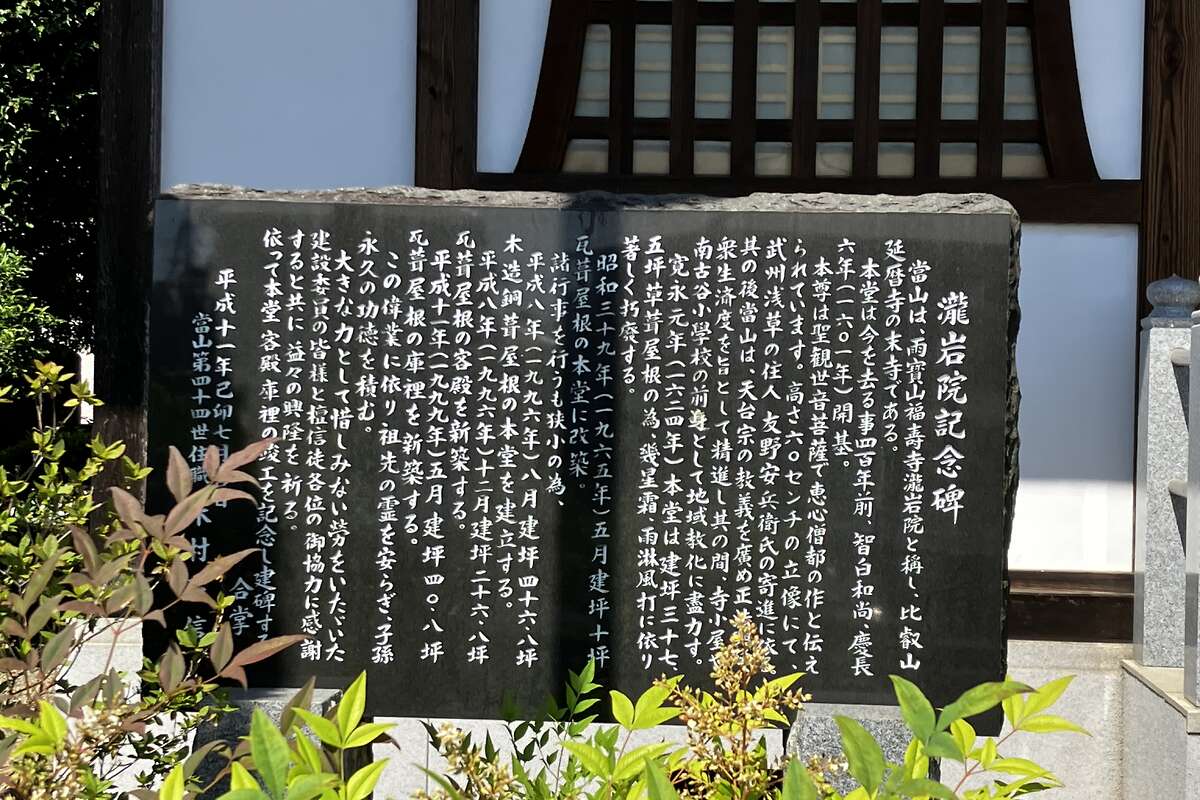 瀧岩院記念碑
當山は、雨寶山福壽寺瀧岩院と稱し、比叡山
延暦寺の末寺である。
本堂は今を去る事四百年前、智白和尚、慶長
六年(一六〇一年)開基。
本尊は聖観世音菩薩で恵心僧都の作と伝え
られています。高さ六〇センチの立像にて、
武州浅草の住人友野安兵衛氏の寄進に依
其の後當山は、天台宗の教義を廣め正
衆生済度を旨として精進し其の間、寺小屋
南古谷小學校の前身として地域教化に盡力す。
寛永元年(一六二四年)本堂は建坪三十七、
五坪草葺屋根の為、幾星霜、雨淋風打に依り
著しく朽廃する。
昭和三十九年(一九六五年)五月建坪十坪
瓦葺屋根の本堂に改築。
諸行事を行うも狭小の為、
平成八年(一九九六年)八月建坪四十六・八坪
木造銅葺屋根の本堂を建立する。
平成八年(一九九六年)十二月建坪二十六・八坪
瓦葺屋根の客殿を新築する。
平成十一年(一九九九年)五月建坪四〇・八坪
瓦葺屋根の庫裡を新築する。
この偉業に依り祖先の霊を安らぎ、子孫
永久の功徳を積む。
大きな力として惜しみない労をいただいた
建設委員の皆様と檀信徒各位の御協力に感謝
すると共に益々の興隆を祈る。
依って本堂 客殿 庫裡の竣工を記念し建碑する
平成十一年己卯七月 日
當山第四十四世住職 木村 信
合掌